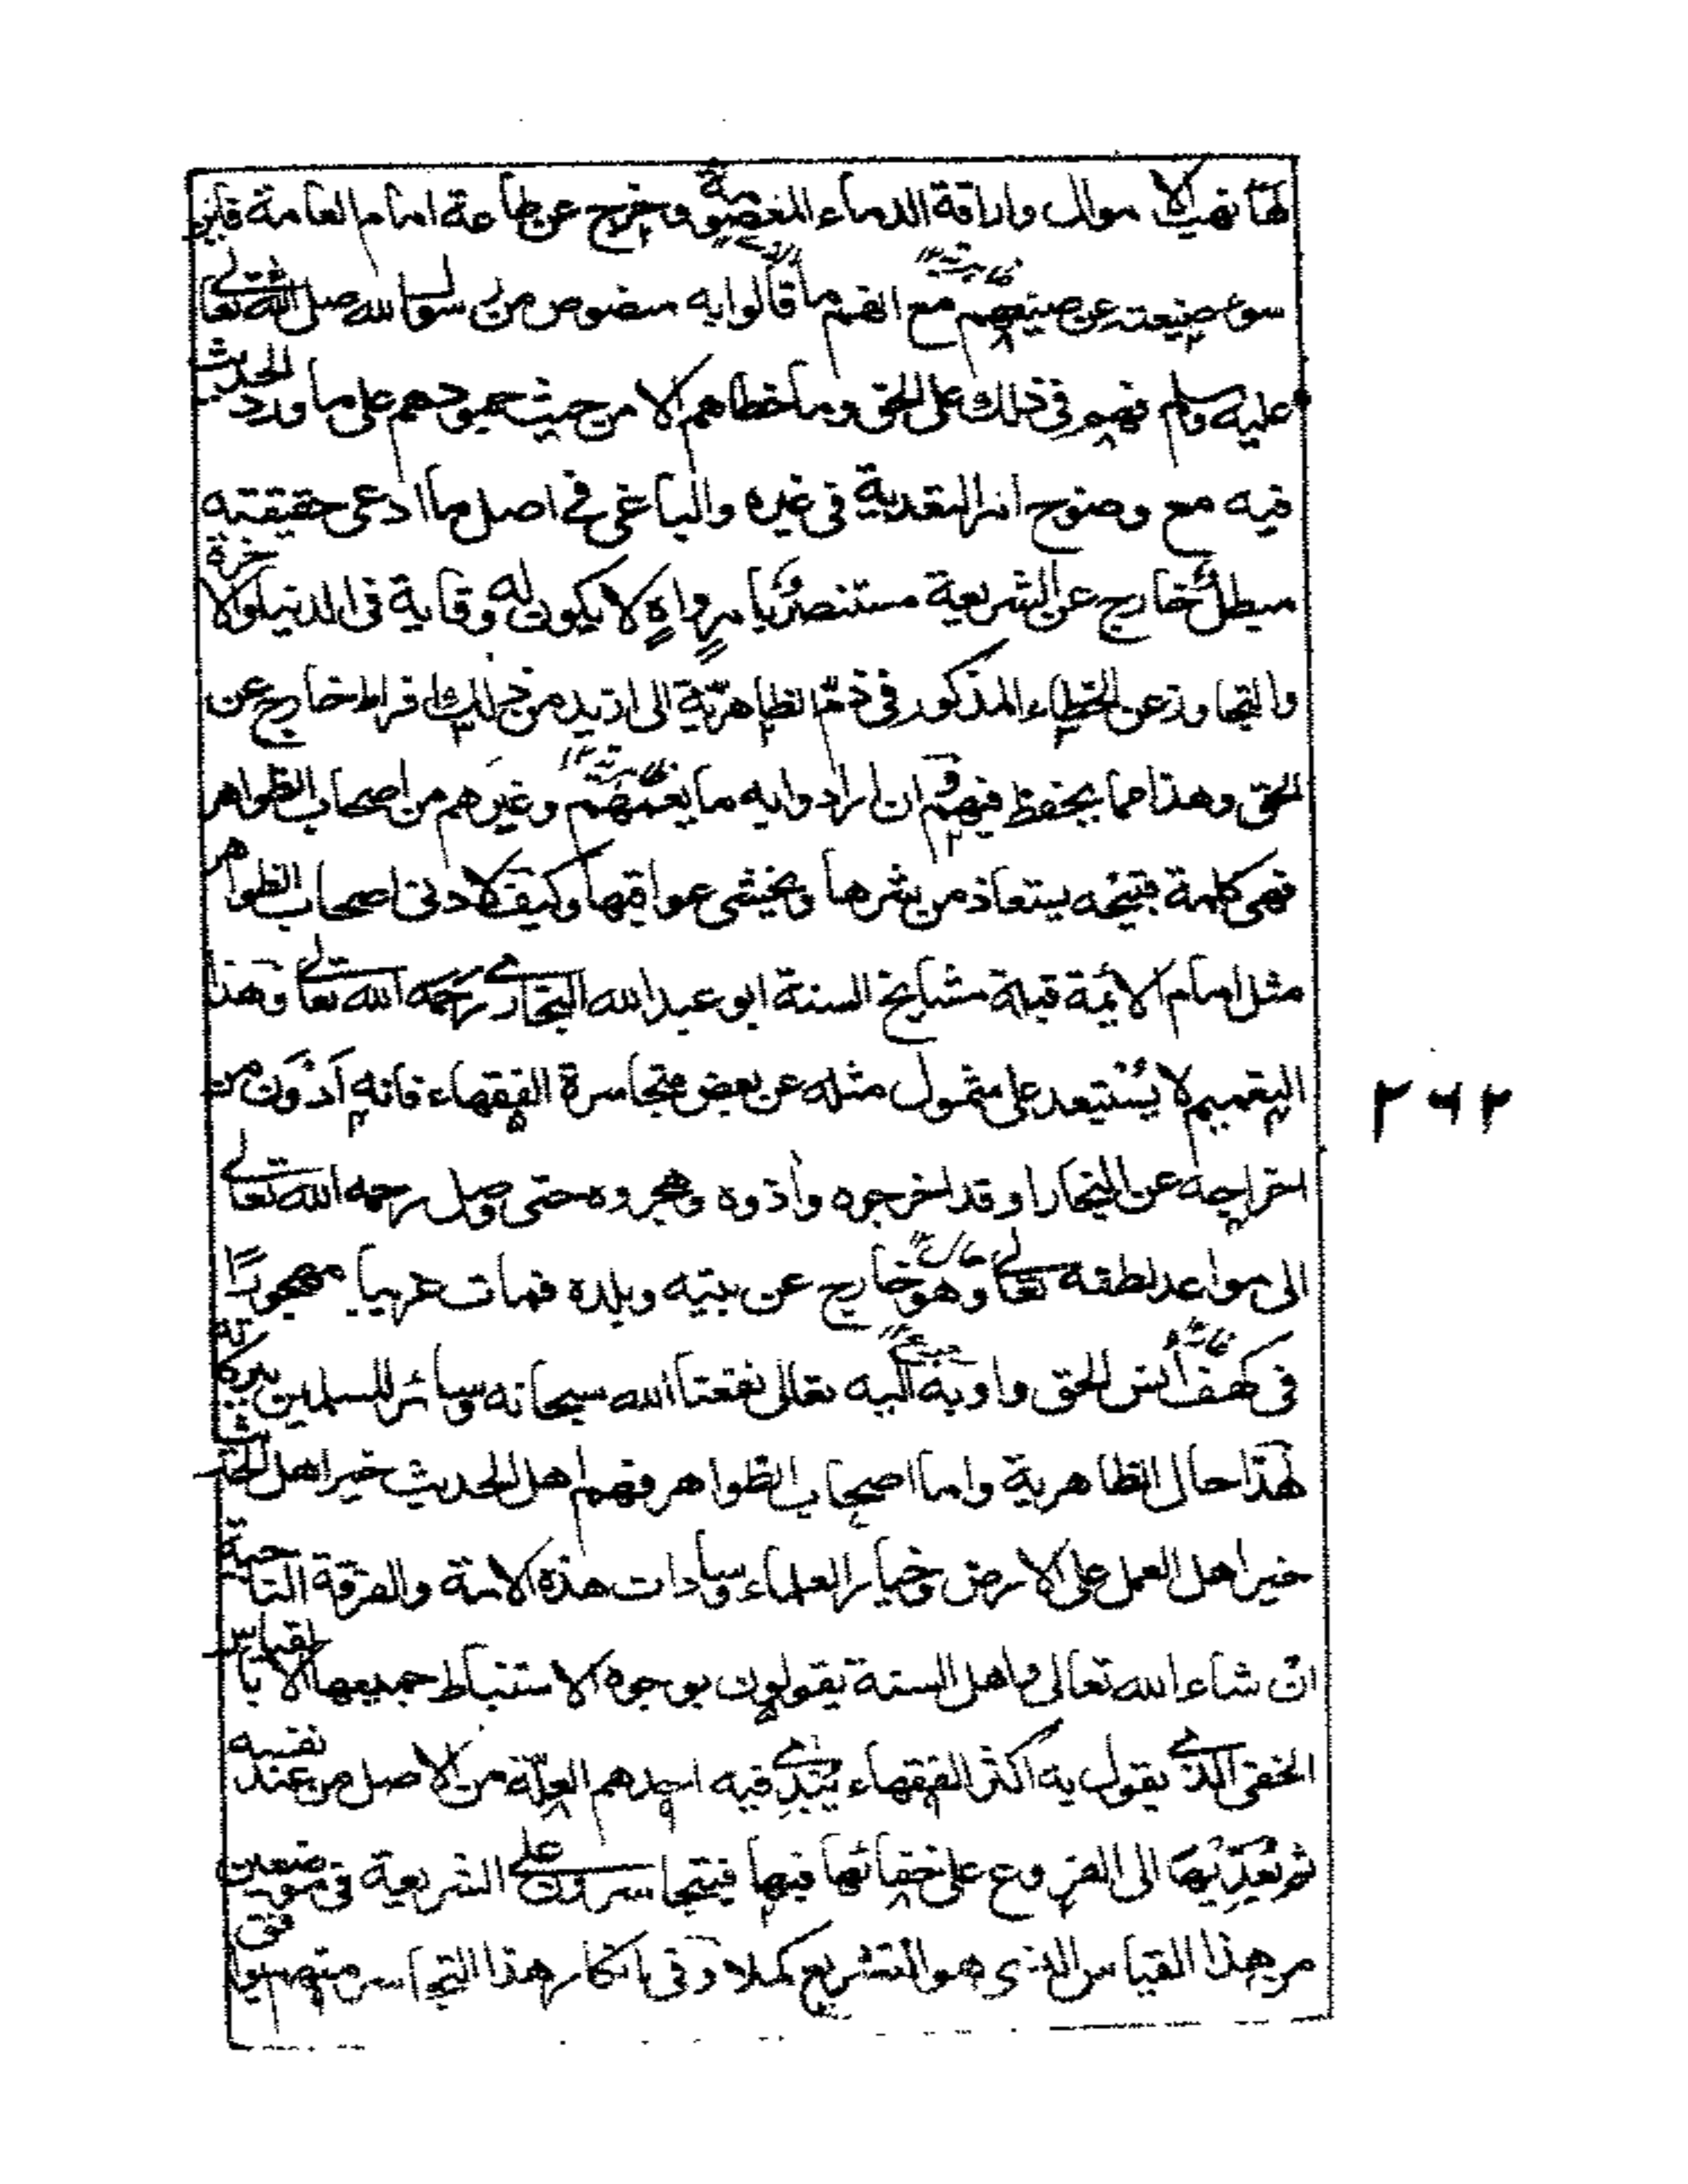 لها نهب الاموال واراقة الدماء المعصومة وخرج عن طاعة امام العامة فاين
سوء صنيعته عن صنيعهم مع انهم ما قالوا به منصوص من رسول الله صلى الله تعالى
عليه وسلم فهم في ذلك على الحق وما خطاهم الا من حيث جمودهم على ما ورد الحديث
فيه مع وضوح اثر التعدية في غيره والباغي في اصل ما ادعى حقيقته
مبطل خارج عن الشريعة مستنصر بامر واه لا يكون له وقاية في الدنيا والاخرة
والتجاوز عن الخطاء المذكور في ذم الظاهرية الى ازيد من ذلك افراط خارج عن
الحق وهذا مما يحفظ فيهم وان ارادوا به ما يعمهم وغيرهم من اصحاب الظواهر
فهي كلمة قبيحة يستعاذ من شرها ويخشى عواقبها وكيف لا وفي اصحاب الظواهر
مثل امام الائمة قبلة مشايخ السنة ابو عبد الله البخاري رحمه الله تعالى وهذا
التعميم لا يستبعد على مثله عن بعض متجاسرة الفقهاء فانه ادون من
اخراجه عن البخارا وقد اخرجوه واذوه وهجروه حتى وصل رحمه الله تعالى
الى مواعد لطفه تعالى وهو خارج عن بيته وبلده فمات غريبا مهجورا
في كهف انس الحق واوبة اليه تعالى نفعنا الله سبحانه وسائر المسلمين ببركاته
هذا حال الظاهرية واما اصحاب الظواهر فهم اهل الحديث خير اهل الحديث
خير اهل العمل على الارض وخيار العلماء وسادات هذه الامة والفرقة الناجية
ان شاء الله تعالى واهل السنة يقولون بوجوه الاستنباط جميعها الا بالقياس
الخفي الذي يقول به اكثر الفقهاء يبدي فيه احدهم العلة من الاصل من عند نفسه
ثم يعديها الى الفروع على خفائها فيها فيتجاسرون على الشريعة في موضعين
من هذا القياس الذي هو التشريع وفي بانكار هذا التجاسر منهم
٢٦٢